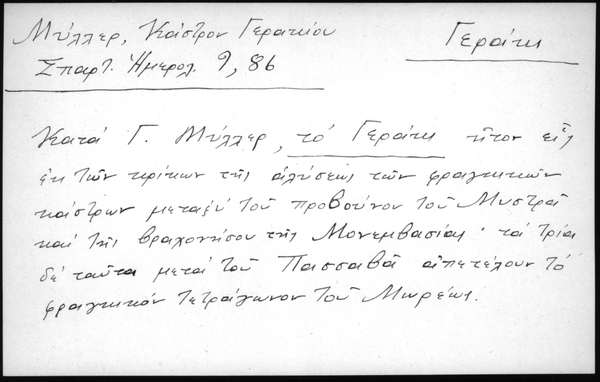 Μύλλερ, Κάστρον Γερακίου
Γεράκι
Σπαρτ. Ἡμερολ. 9, 86
Κατά Γ. Μύλλερ, τό Γεράκι ἦτον εἷς
ἐκ τῶν κρίκων τῆς ἁλύσεως τῶν φραγκικῶν
κάστρων μεταξύ τοῦ προβούνου τοῦ Μυστρᾶ
καί τῆς βραχονήσου τῆς Μονεμβασίας· τά τρία
δέ ταῦτα μετά τοῦ Πασσαβᾶ ἀπετέλουν τό
φραγκικόν τετράγωνον τοῦ Μωρέως.